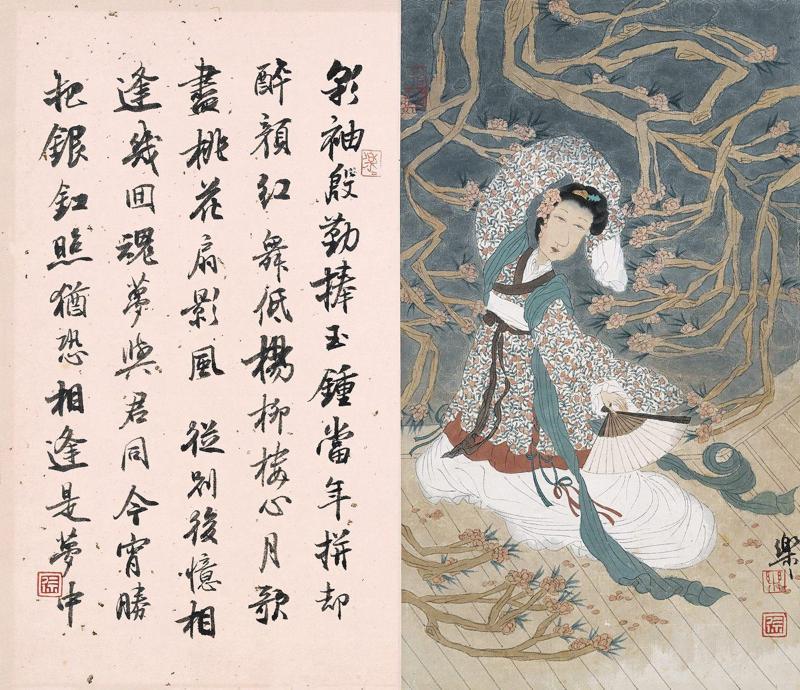 彩袖殷勤捧玉鍾當年拼却
醉顏紅舞低楊柳樓心月歌
盡桃花扇影風 從別後憶相
逢幾回魂夢與君同今宵賸
把銀釭照猶恐相逢是夢中
樂